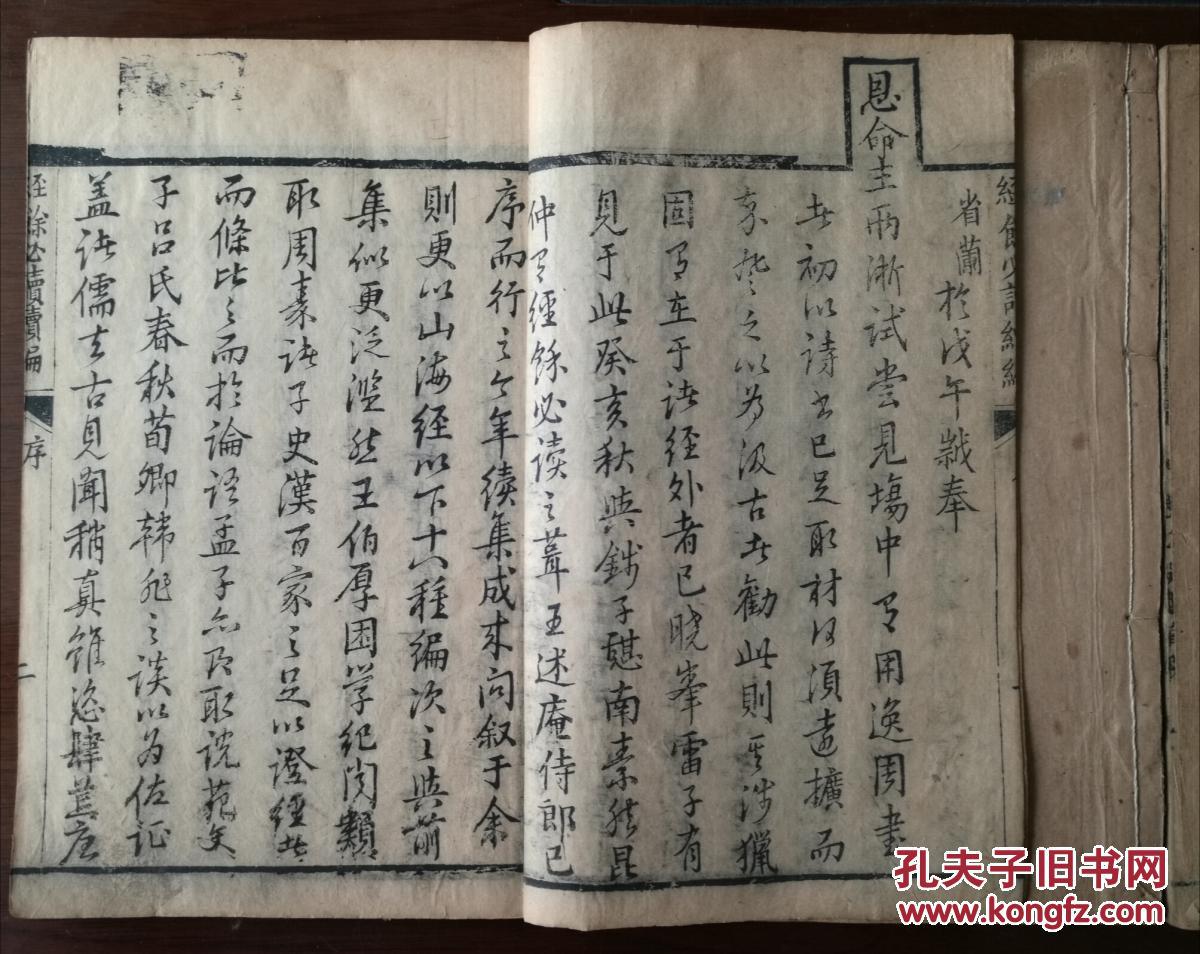 經餘必讀續編
省蘭於戊午歲奉
恩命主兩浙試嘗見場中有用逸周書
者初以詩書已足取材何須遠擴而
亦禁之以為汲古者勸此則其涉獵
固有在于諸經外者已曉峯雷子有
見于此癸亥秋與錢子樹南素然昆
仲有經餘必读之葺王述庵侍郎已
序而行之今年續集成來问叙于余
則更以山海经以下十八種編次之與前
集似更泛滥然王伯厚困学纪闻類
取周秦諸子史漢百家之足以證經者
而條比之而於論語孟子亦即取說苑文
子吕氏春秋荀卿韩非之談以為佐证
盖諸儒去古見聞稍真雖恣肆荒唐
經餘必讀續編
序
二
孔夫子旧书网
www.kongfz.com